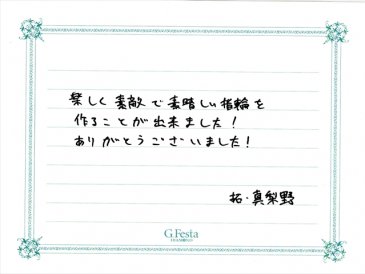 楽しく素敵で素晴しい指輪を
作ることが出来ました!
ありがとうございました!
拓・真梨野
G.Festa